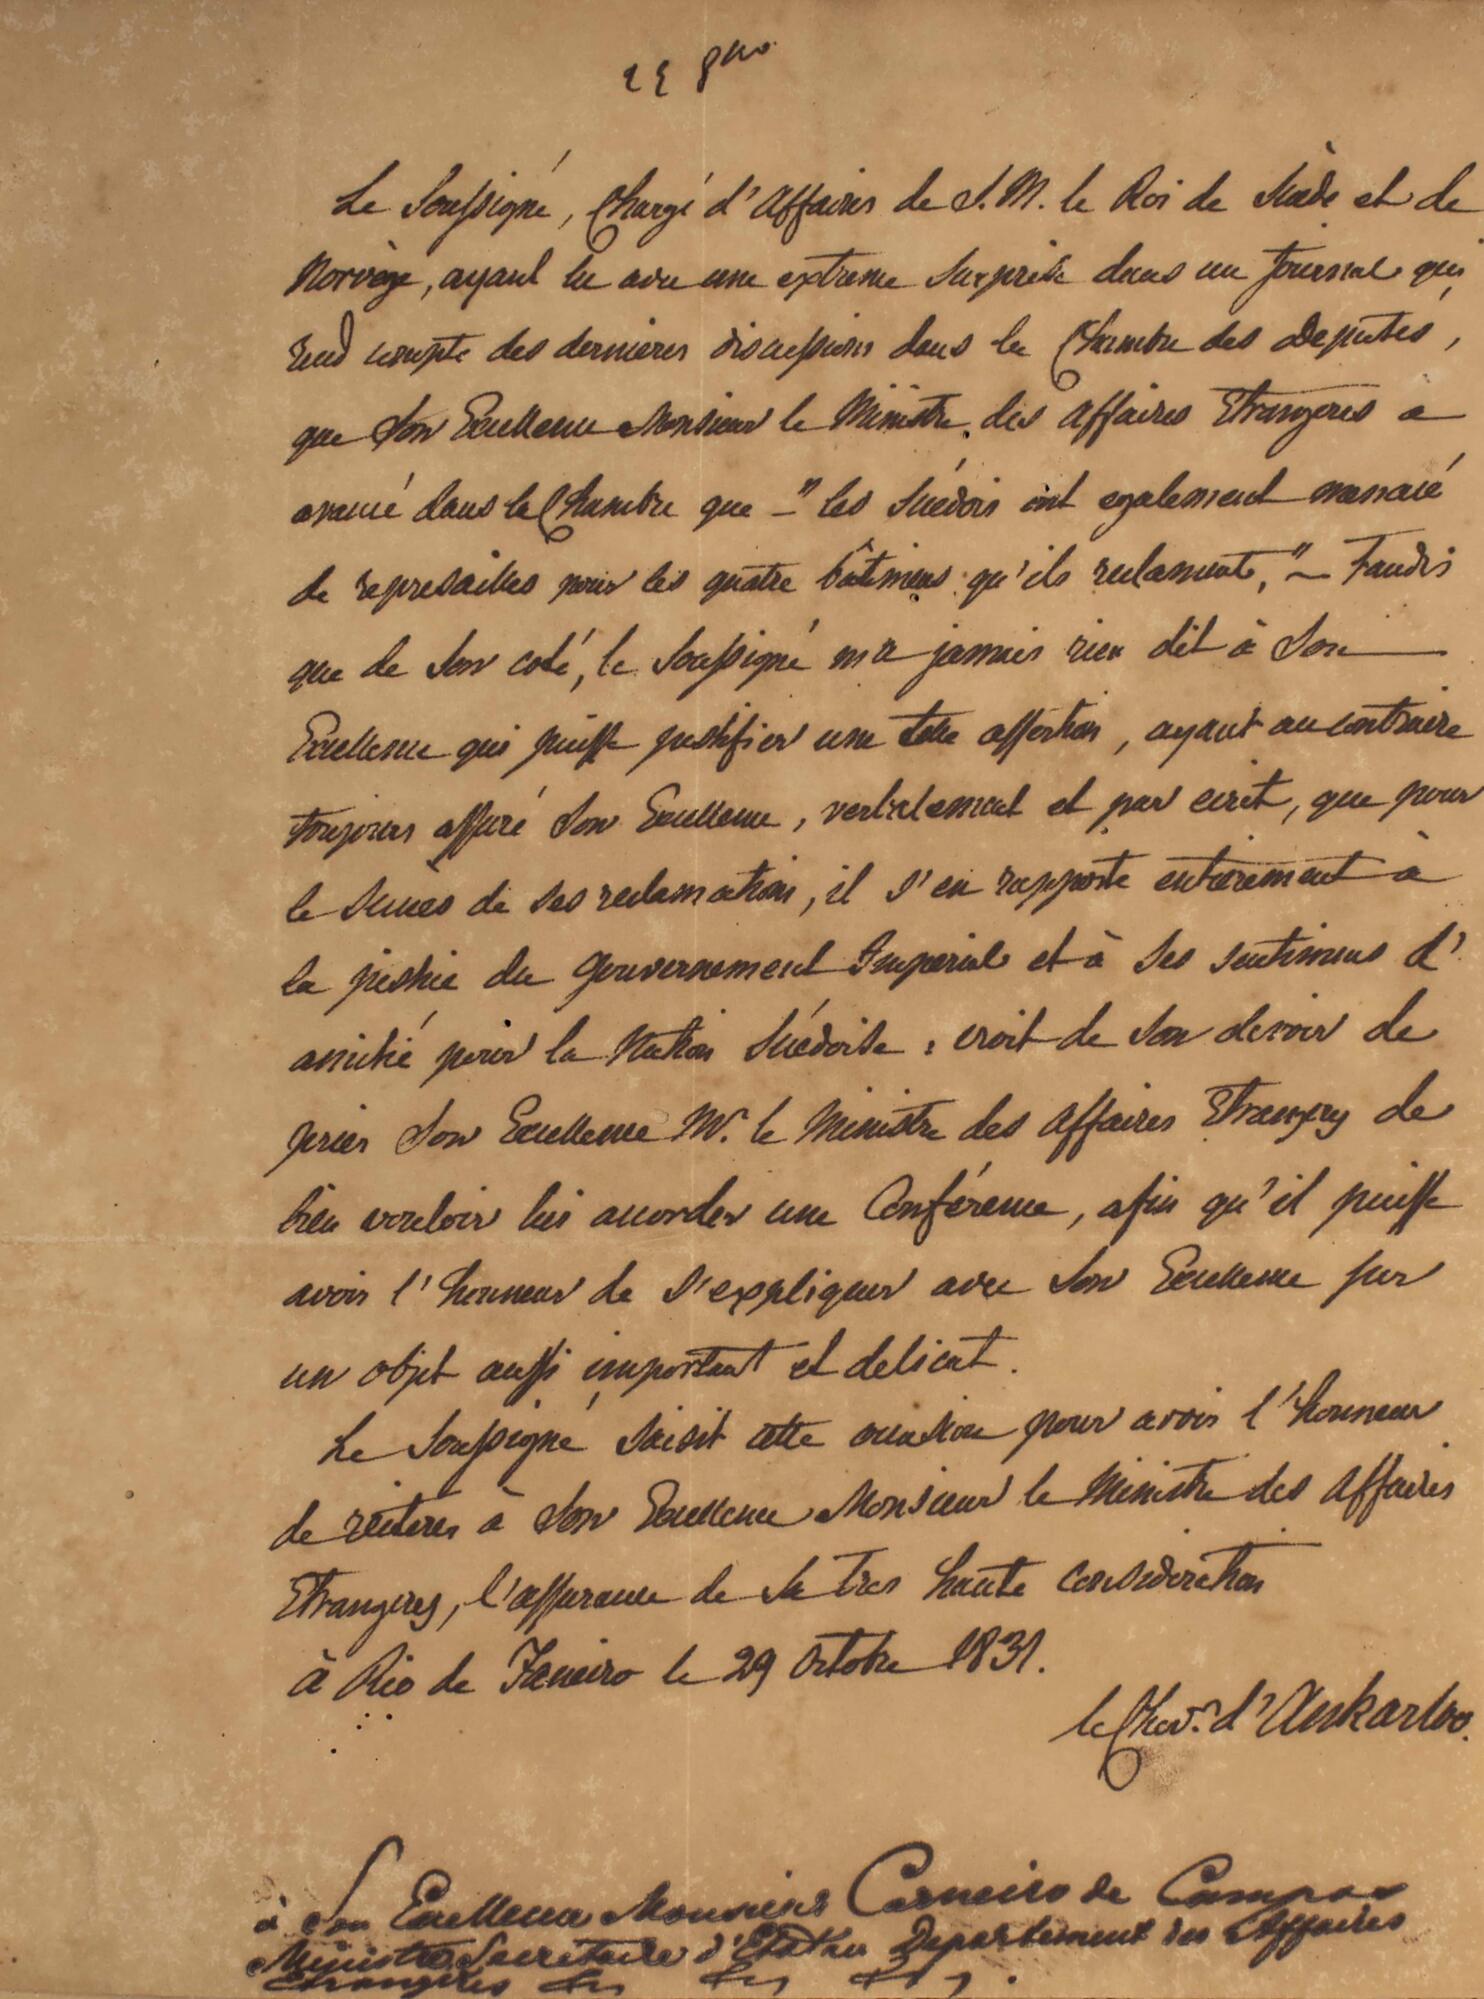 Le Soussigné, Chargé d'Affaires de S. M. le Roi de Suède et de
Norvège, ayant lu avec une extreme surprise dans un Journal qui
rend compte des dernieres discussions dans la Chambre des Deputés,
que Son Excellence Monsieur le Ministre des Affaires Etrangeres a
avancé dans la Chambre que – "les Suédois ont egalement menacé
de represailles pour les quatre bâtimens qu'ils reclament," – Tandis
que de Son coté, le Soussigné n'a jamais rien dit à Son
Excellence qui puisse justifier une telle assertion, ayant au contraire
toujours assuré Son Excellence, verbalement et par ecrit, que pour
le succès de ses reclamation, il s'en rapporte entierement à
la justice du Gouvernement Imperial et à ses sentimens d'
amitié pour la Nation Suédoise : croit de Son devoir de
prier Son Excellence Mr. le Ministre des Affaires Etrangers de
bien vouloir lui accorder une Conférence, afin qu'il puisse
avoir l'honneur de s'expliquer avec Son Excellence sur
un objet aussi important et delicat.
Le Soussigné saisit cette occasion pour avoir l'honneur
de réiterer à Son Excellence Monsieur le Ministre des Affaires
Etrangeres, l'assurance de Sa tres haute consideration
à Rio de Janeiro le 29 Octobre 1831.
le Chev.r d'Ankarloo.
à Son Excellence Monsieur Carneiro de Campos
Ministre Secretaire d'Etat au Departement des Affaires
Etrangères